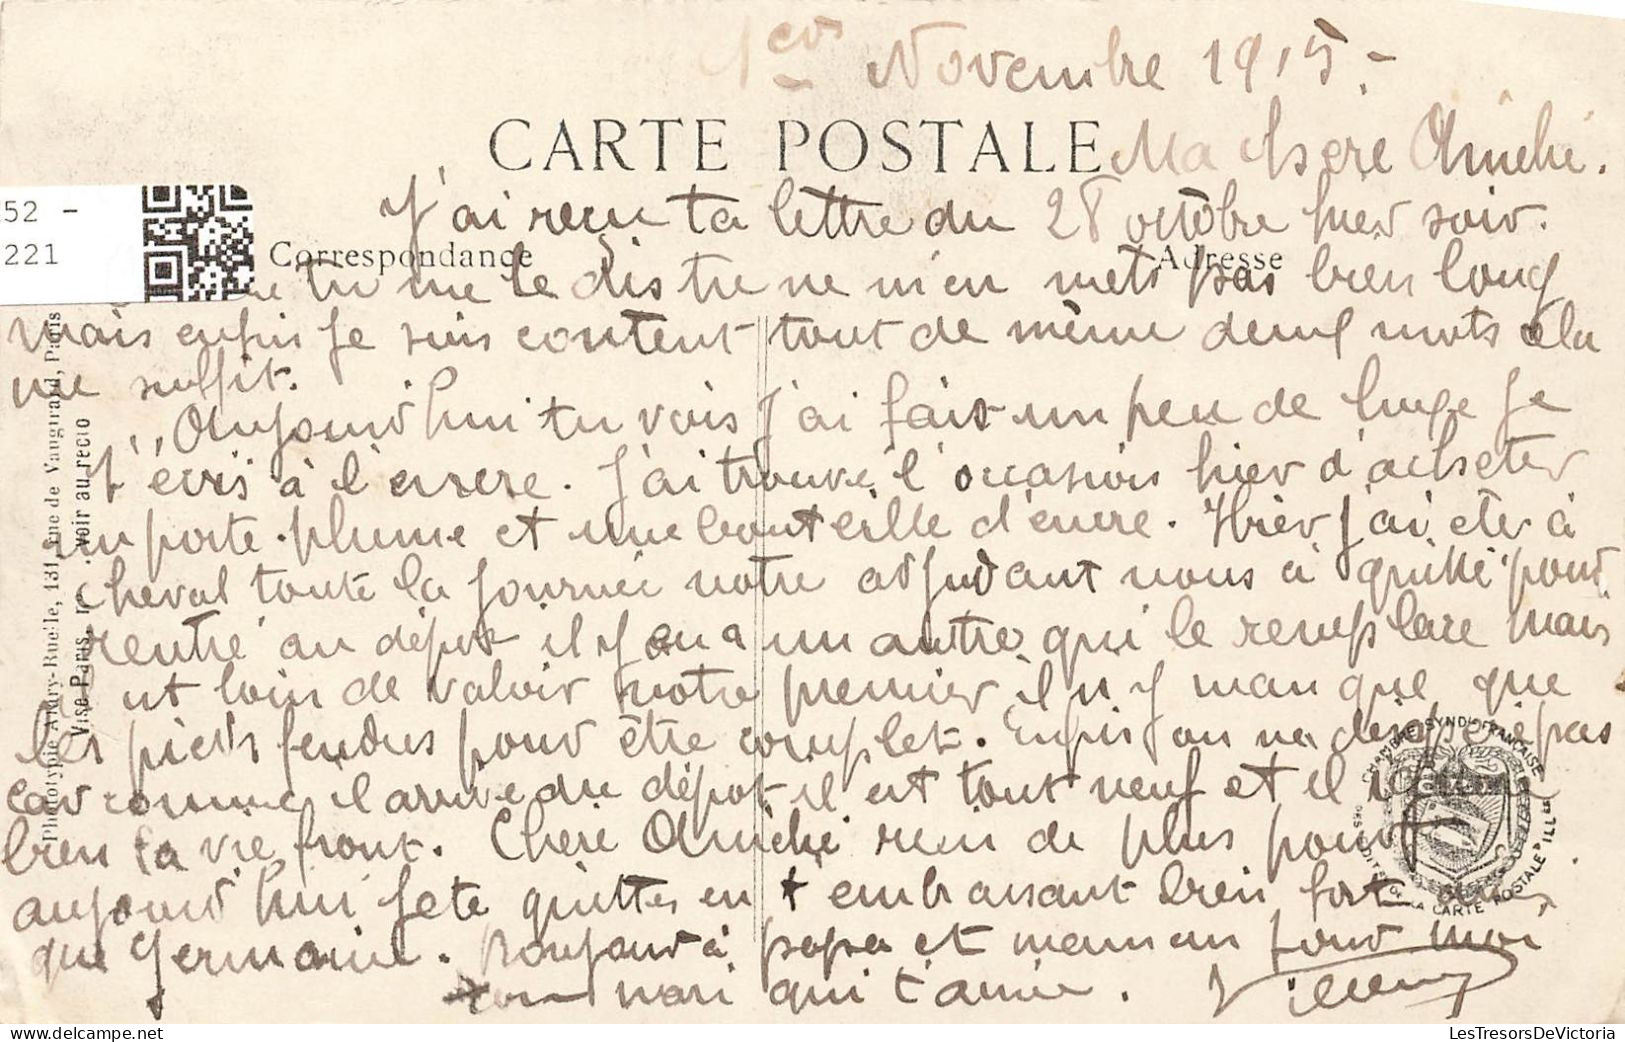 1er Novembre 1915 -
CARTE POSTALE
Ma chère
J'ai reçu ta lettre du 28 octobre hier soir.
52 -
221
Correspondance
Adresse
tu me le dis tu ne m'en mets pas bien long
mais enfin je suis content tout de même deux mots cela
me suffit.
Aujourd'hui tu vois j'ai fait un peu de luxe je
t'écris à l'encre. J'ai trouvé l'occasion hier d'acheter
un porte-plume et une bouteille d'encre. Hier j'ai été à
cheval toute la journée notre adjudant nous a quitté pour
rentré au dépot il y en a un autre qui le remplace mais
est loin de valoir notre premier il n'y manque que
les pieds fendus pour être complet. Enfin on ne désespère pas
car comme il arrive du dépot il est tout neuf et il
bien la vie front. Chère rien de plus pour
aujourd'hui je te quitte en t'embrassant bien fort
que Germaine. Bonjour à papa et maman pour moi
ton mari qui t'aime.
Phototypie Baudry-Ruelle, 131, rue de Vaugirard, Paris
Visé Paris, voir au recto
CHAMBRE SYNDle FRANÇAISE
DE LA CARTE POSTALE ILLée
LesTresorsDeVictoria